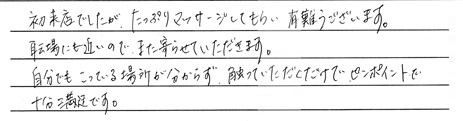 初来店でしたが、たっぷりマッサージしてもらい有難うございます。
職場にも近いので、また寄らせていただきます。
自分でもこっている場所が分からず、触っていただくだけでピンポイントで
十分満足です。